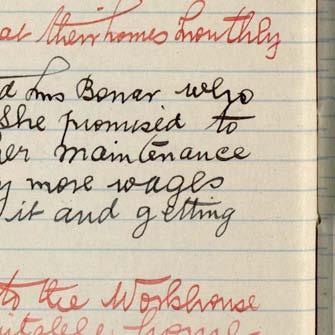 at their homes monthly
d Mrs Bonar who
She promised to
her maintenance
y more wages
it and getting
to the Workhouse